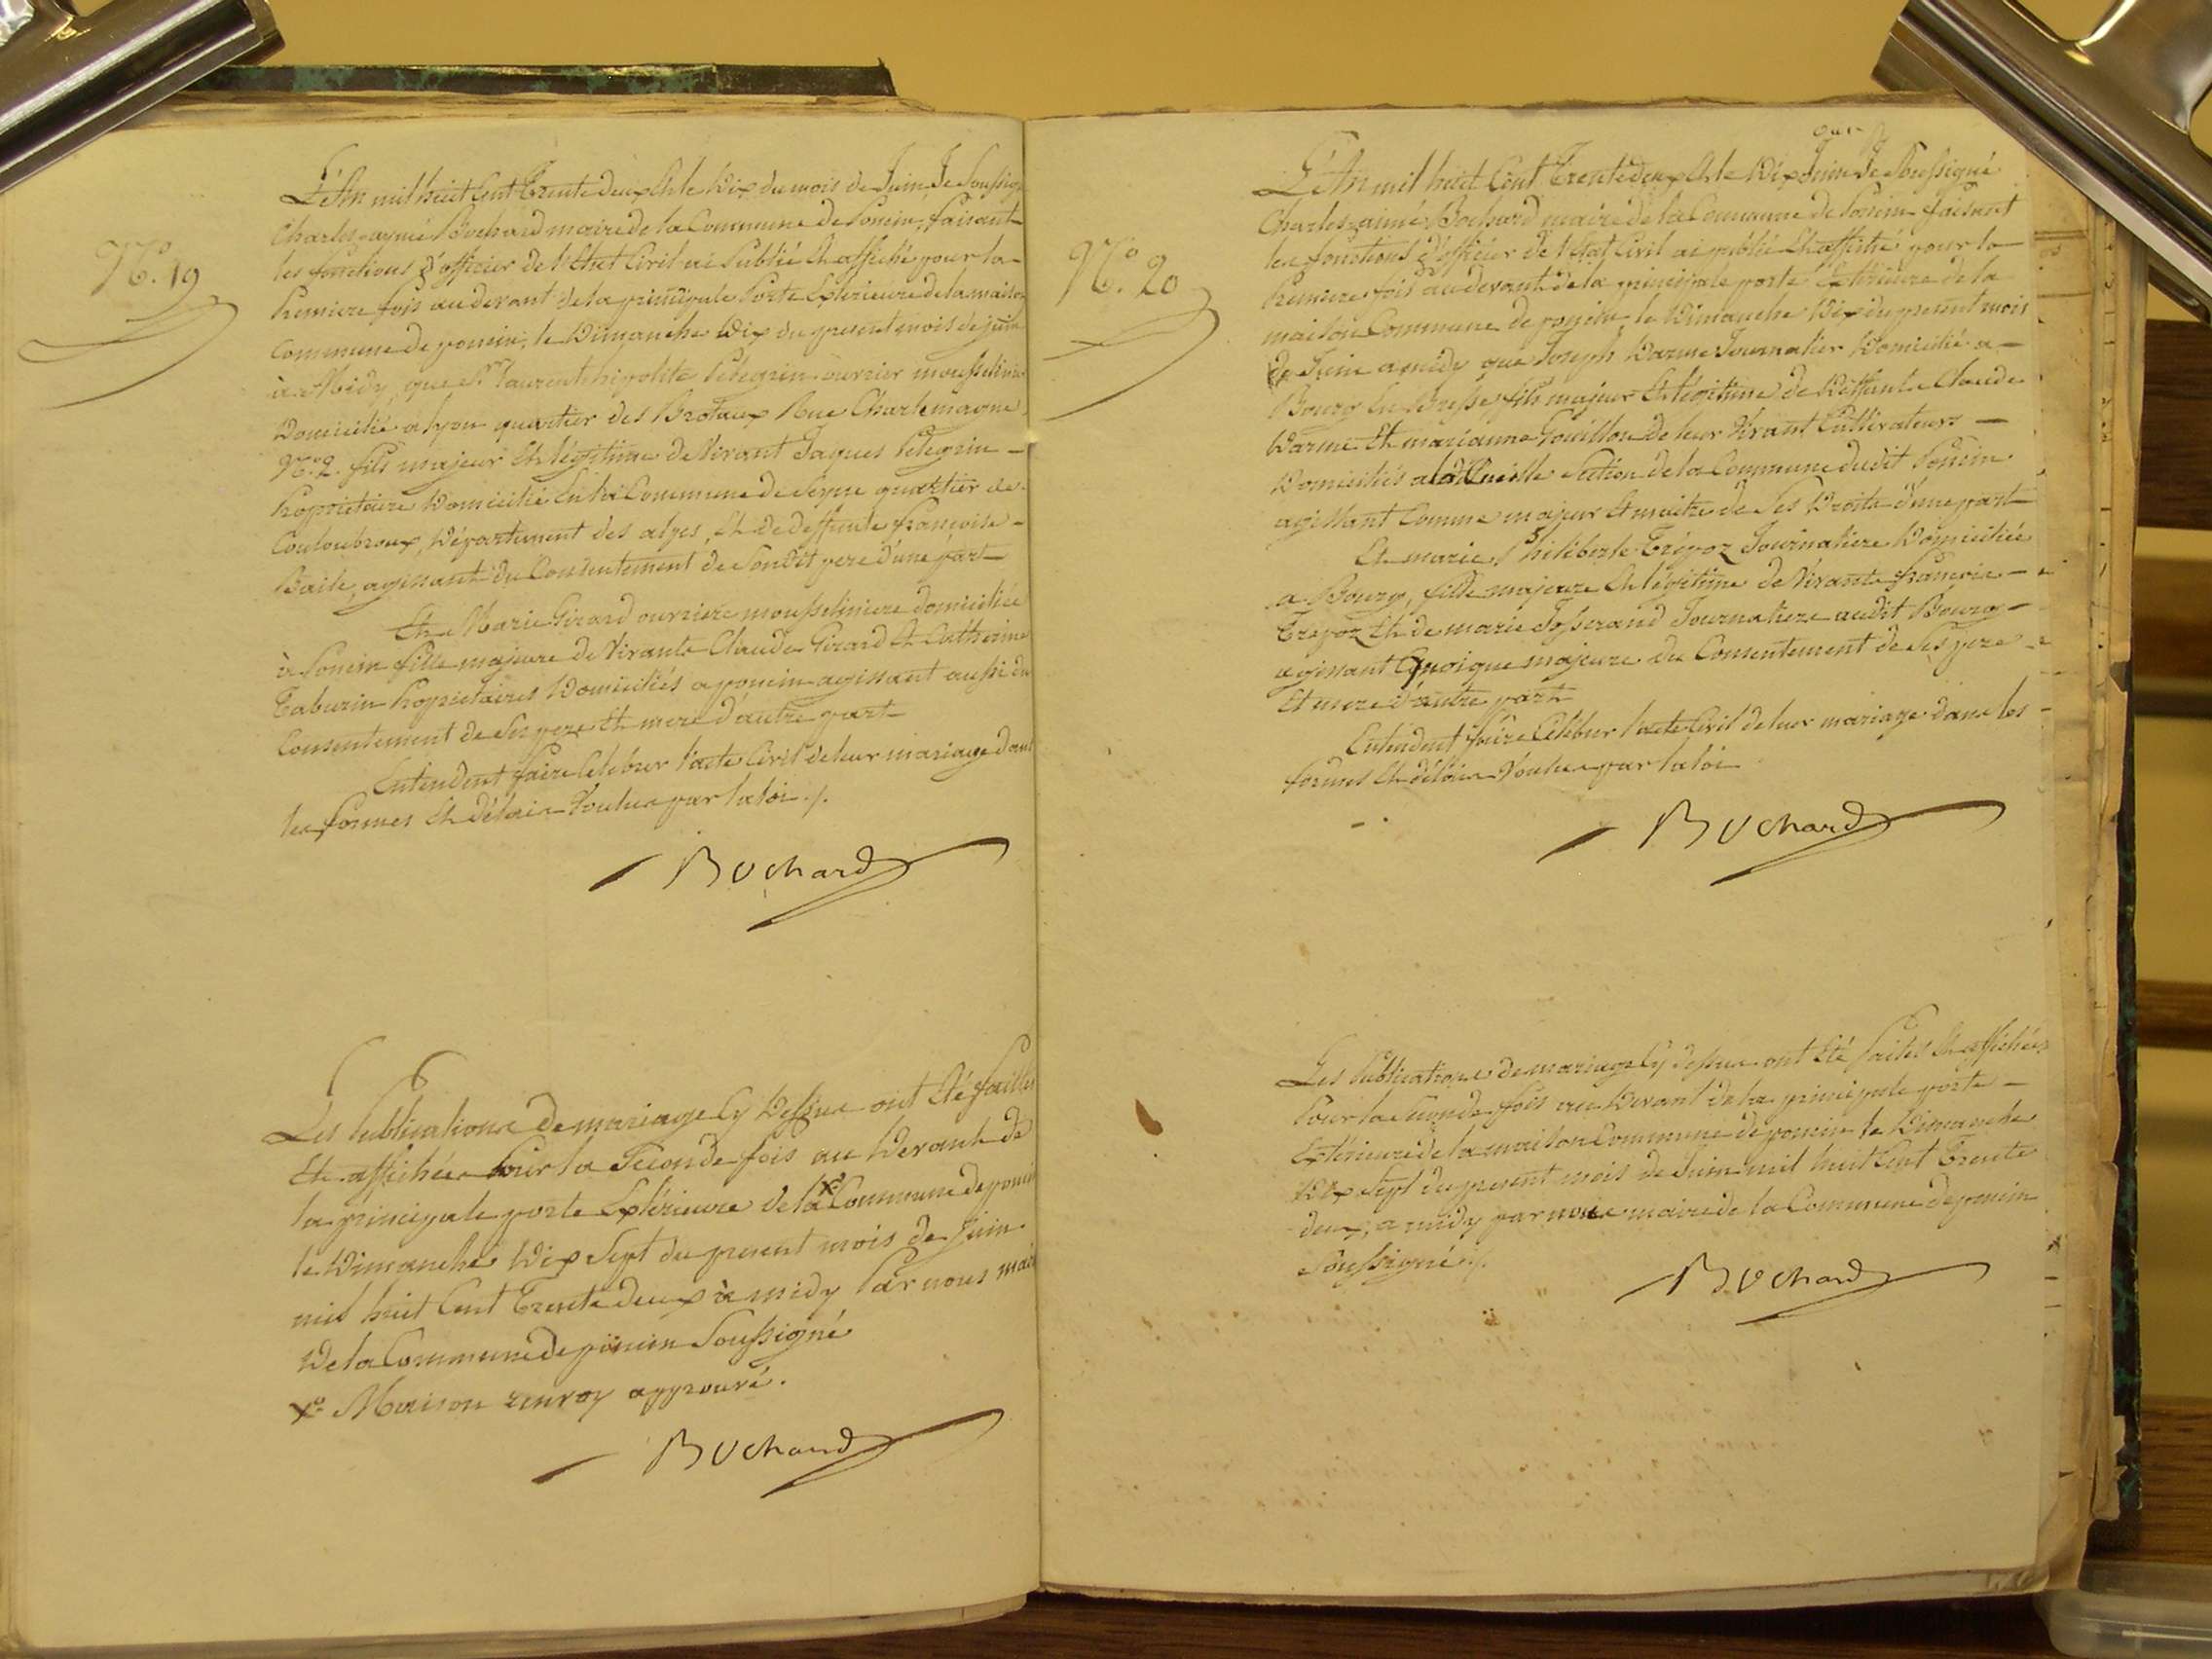 N.° 19
L'An mil huit Cent Trente deux Et le Dix du mois de Juin Je Soussigné
Charles aymé Bochard maire de la Commune de Poncin, faisant
les fonctions d'officier de l'Etat Civil ai Publié Et affiché pour la
Premiere fois au devant de la principale Porte Exterieure de la maison
Commune de poncin, le Dimanche Dix du present mois de juin
à Midy, que Sr. laurent hipolite Pelegrin ouvrier mousselinier
Domicilié a lyon quartier des Brotaux Rue Charlemagne
N.° 2. fils majeur Et légitime de Vivant Jaques Pelegrin
Propriétaire Domicilié En la Commune de Seyne quartier de
Couloubroux, Département des alpes, Et de Deffunte françoise
Baile, agissant du Consentement de Son Dit pere d'une part
Et Marie Girard ouvriere mousseliniere domiciliée
à Poncin fille majeure de Vivants Claude Girard Et Catherine
Taburin Proprietaires Domiciliés a poncin agissant aussi du
Consentement de Ses pere Et mere d'autre part
Entendent faire Celebrer l'acte Civil de leur mariage dans
les formes Et délais Voulus par la loi ./.
Bochard
Les Publications de mariage Cy Dessus ont Eté faittes
Et affichées Pour la Seconde fois au Devant de
la principale porte Extérieure de la X° Commune de poncin
le Dimanche Dix Sept du present mois de Juin
mil huit Cent Trente deux à midy Par nous maire
De la Commune de poncin Soussigné
X° Maison renvoy approuvé.
Bochard
N.° 20
L'An mil huit Cent Trente deux Et le Dix Juin Je Soussigné
Charles aimé Bochard maire de la Commune de Poncin faisant
les fonctions d'officier de l'Etat Civil ai publié Et affiché pour la
Premiere fois au devant de la principale porte Extérieure de la
maison Commune de poncin le Dimanche Dix du present mois
de Juin a midy que Joseph Darme Journalier Domicilié a
Bourg En Bresse, fils majeur Et légitime de Deffunt Claude
Darme Et marianne Gouillon de leur Vivant Cultivateurs
Domiciliés a la Cueille Section de la Commune dudit Poncin
agissant Comme majeur Et maitre de Ses Droits d'une part
Et marie Philiberte Trépoz Journaliere Domiciliée
a Bourg, fille majeure Et légitime de Vivants françois
Trepoz Et de marie Josserand Journaliere audit Bourg
agissant Quoique majeure du Consentement de Ses pere
Et mere d'autre part
Entendent faire Célébrer l'acte Civil de leur mariage dans les
formes Et délais Voulus par la loi
Bochard
Les Publications de mariage Cy dessus ont Eté faites Et affichées
Pour la Seconde fois au Devant de la principale porte
Extérieure de la maison Commune de poncin le Dimanche
Dix Sept du present mois de Juin mil huit Cent Trente
deux, a midy par nous maire de la Commune de poncin
Soussigné ./.
Bochard